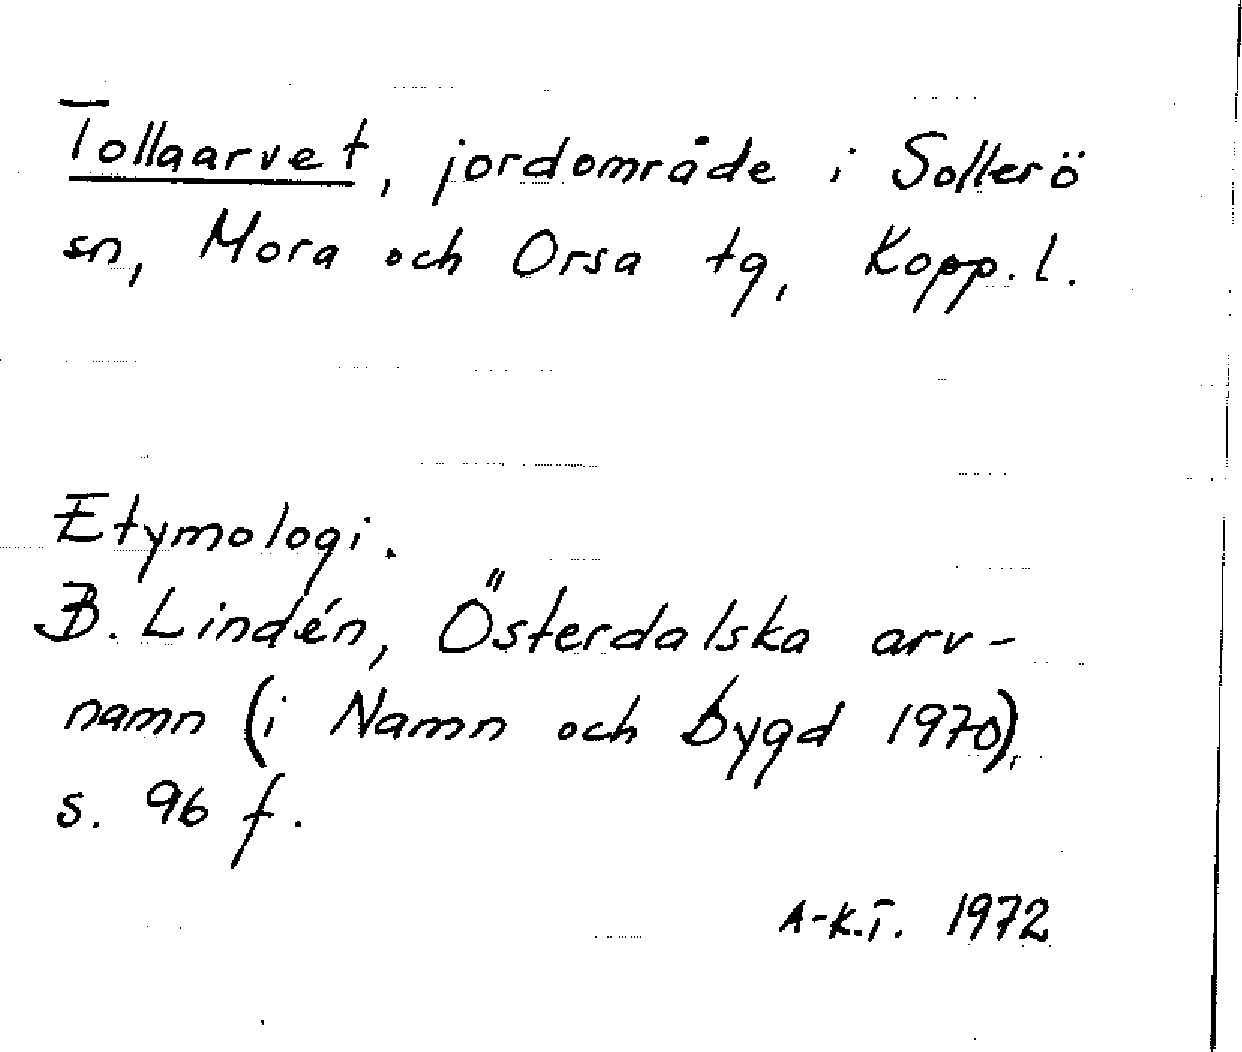 Tollaarvet, jordområde i Sollerö
sn, Mora och Orsa tg, Kopp. l.
Etymologi.
B. Lindén, Österdalska arv-
namn (i Namn och bygd 1970),
s. 96 f.
A-K.T. 1972